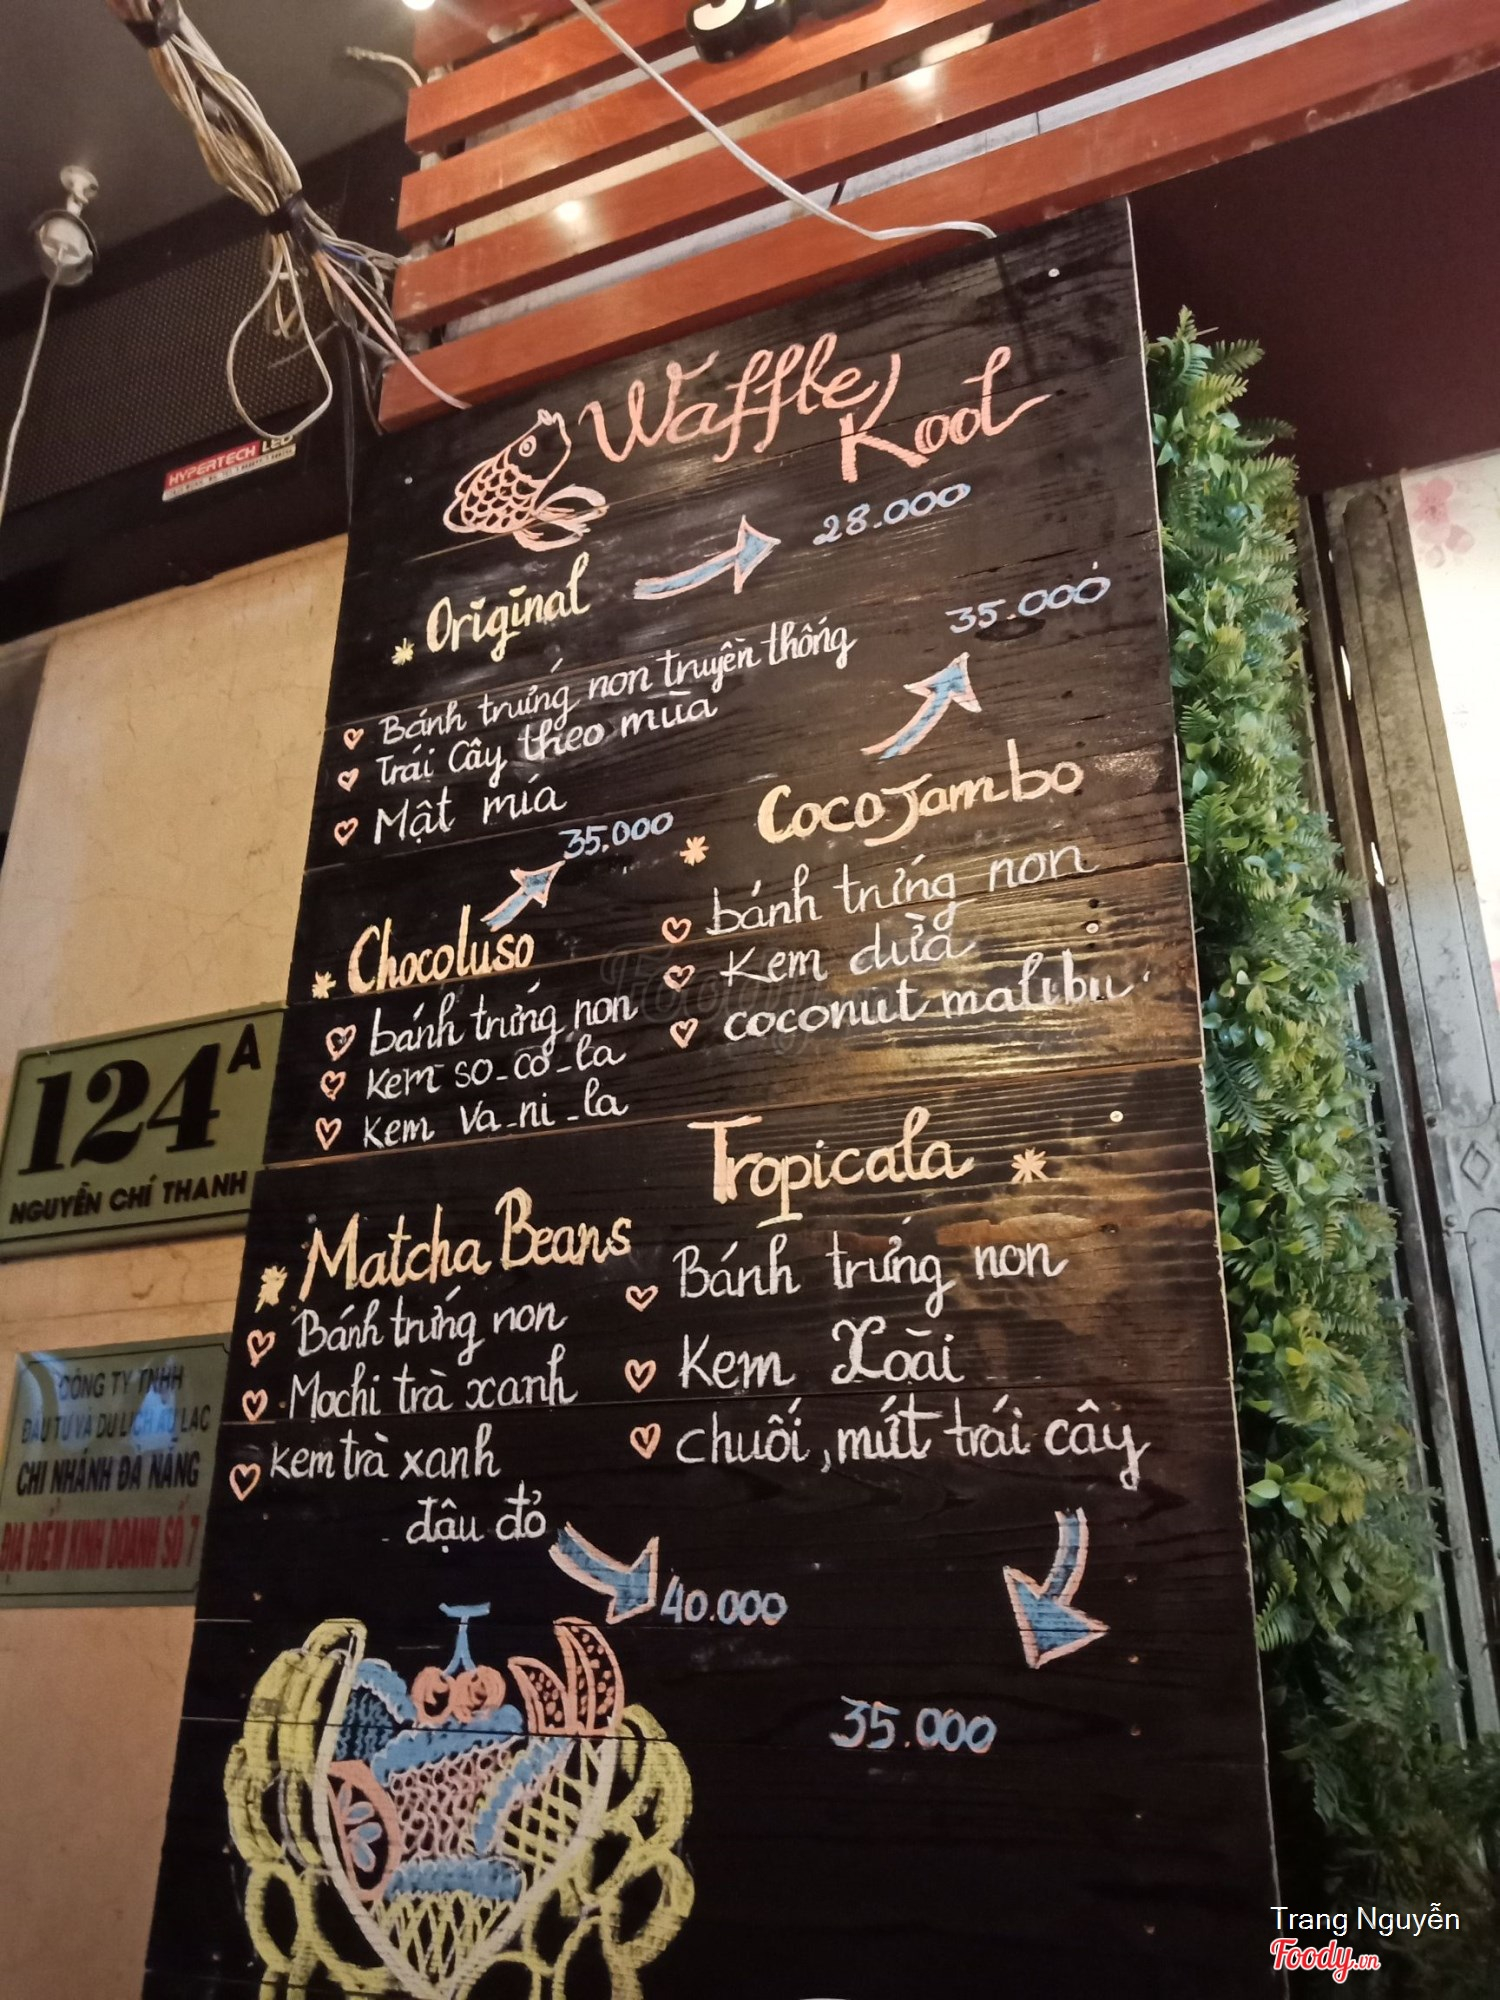 HYPERTECH LED
Waffle
Kool
* Original
28.000
Bánh trứng non truyền thống
Trái Cây theo mùa
Mật mía
35.000
* CocoJambo
bánh trứng non
Kem dừa
coconut malibu
35.000
* Chocoluso
bánh trứng non
Kem so_co_la
Kem va_ni_la
124A
NGUYỄN CHÍ THANH
Tropicala *
Bánh trứng non
Kem Xoài
chuối, mứt trái cây
35.000
* Matcha Beans
Bánh trứng non
Mochi trà xanh
Kem trà xanh
đậu đỏ
40.000
CÔNG TY TNHH
ĐẦU TƯ VÀ DU LỊCH ÂU LẠC
CHI NHÁNH ĐÀ NẴNG
ĐỊA ĐIỂM KINH DOANH SỐ 7
Foody
Trang Nguyễn
Foody.vn